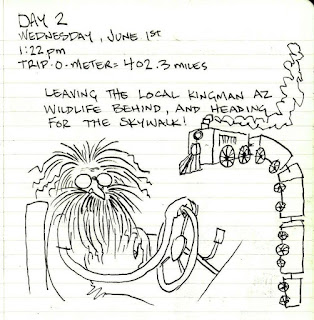 DAY 2
WEDNESDAY, JUNE 1ST
1:22 pm
TRIP-O-METER = 402.3 MILES
LEAVING THE LOCAL KINGMAN AZ
WILDLIFE BEHIND, AND HEADING
FOR THE SKYWALK!